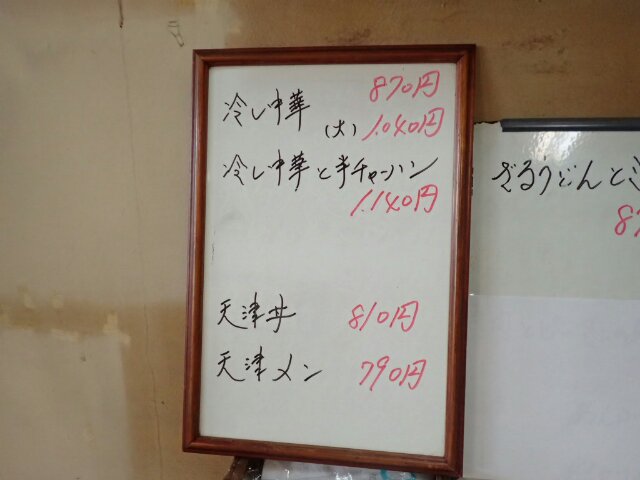 冷し中華 870円
(大) 1.040円
冷し中華と半チャーハン
1.140円
天津丼 810円
天津メン 790円
ざるうどんと
8